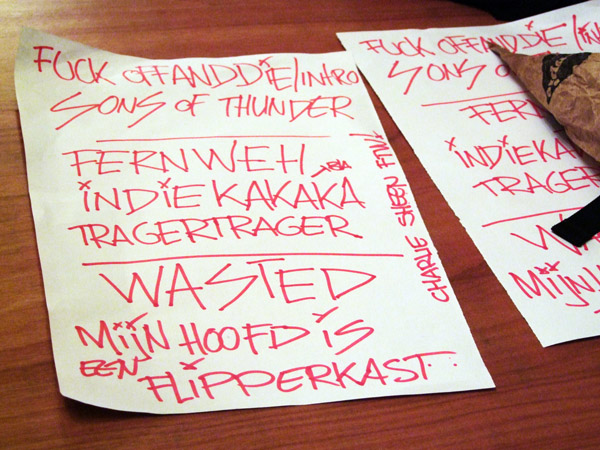 FUCK OFF AND DIE/INTRO
SONS OF THUNDER
FERNWEH
INDIEKAKAKA
TRAGERTRAGER
WASTED
MijN HOOFD iS
EEN
FLiPPERKAST
CHARLIE SHEEN FTW!
FUCK OFF AND DIE/IN
SONS O
FER
INDIEKA
TRAGER
WA
MijN H